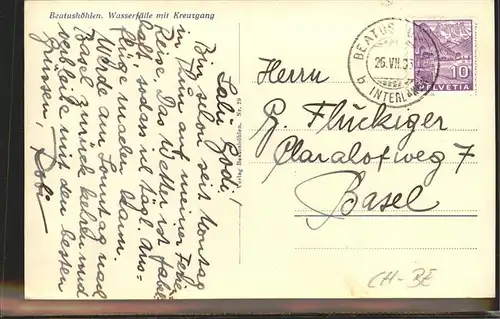 Beatushöhlen. Wasserfälle mit Kreuzgang
Salü Godi!
Bin schon seit Montag
in Thun auf meiner Ferien
Reise. Das Wetter ist fabel-
haft, sodass ich tägl. Aus-
flüge machen kann.
Werde am Sonntag nach
Basel zurück kehren und
verbleibe mit den besten
Grüssen, Robi
Verlag Beatushöhlen. Nr. 29
BEATUS
26.VII.
b INTERL
10
HELVETIA
Herrn
G. Flückiger
Clarahofweg 7
Basel
CH-BE